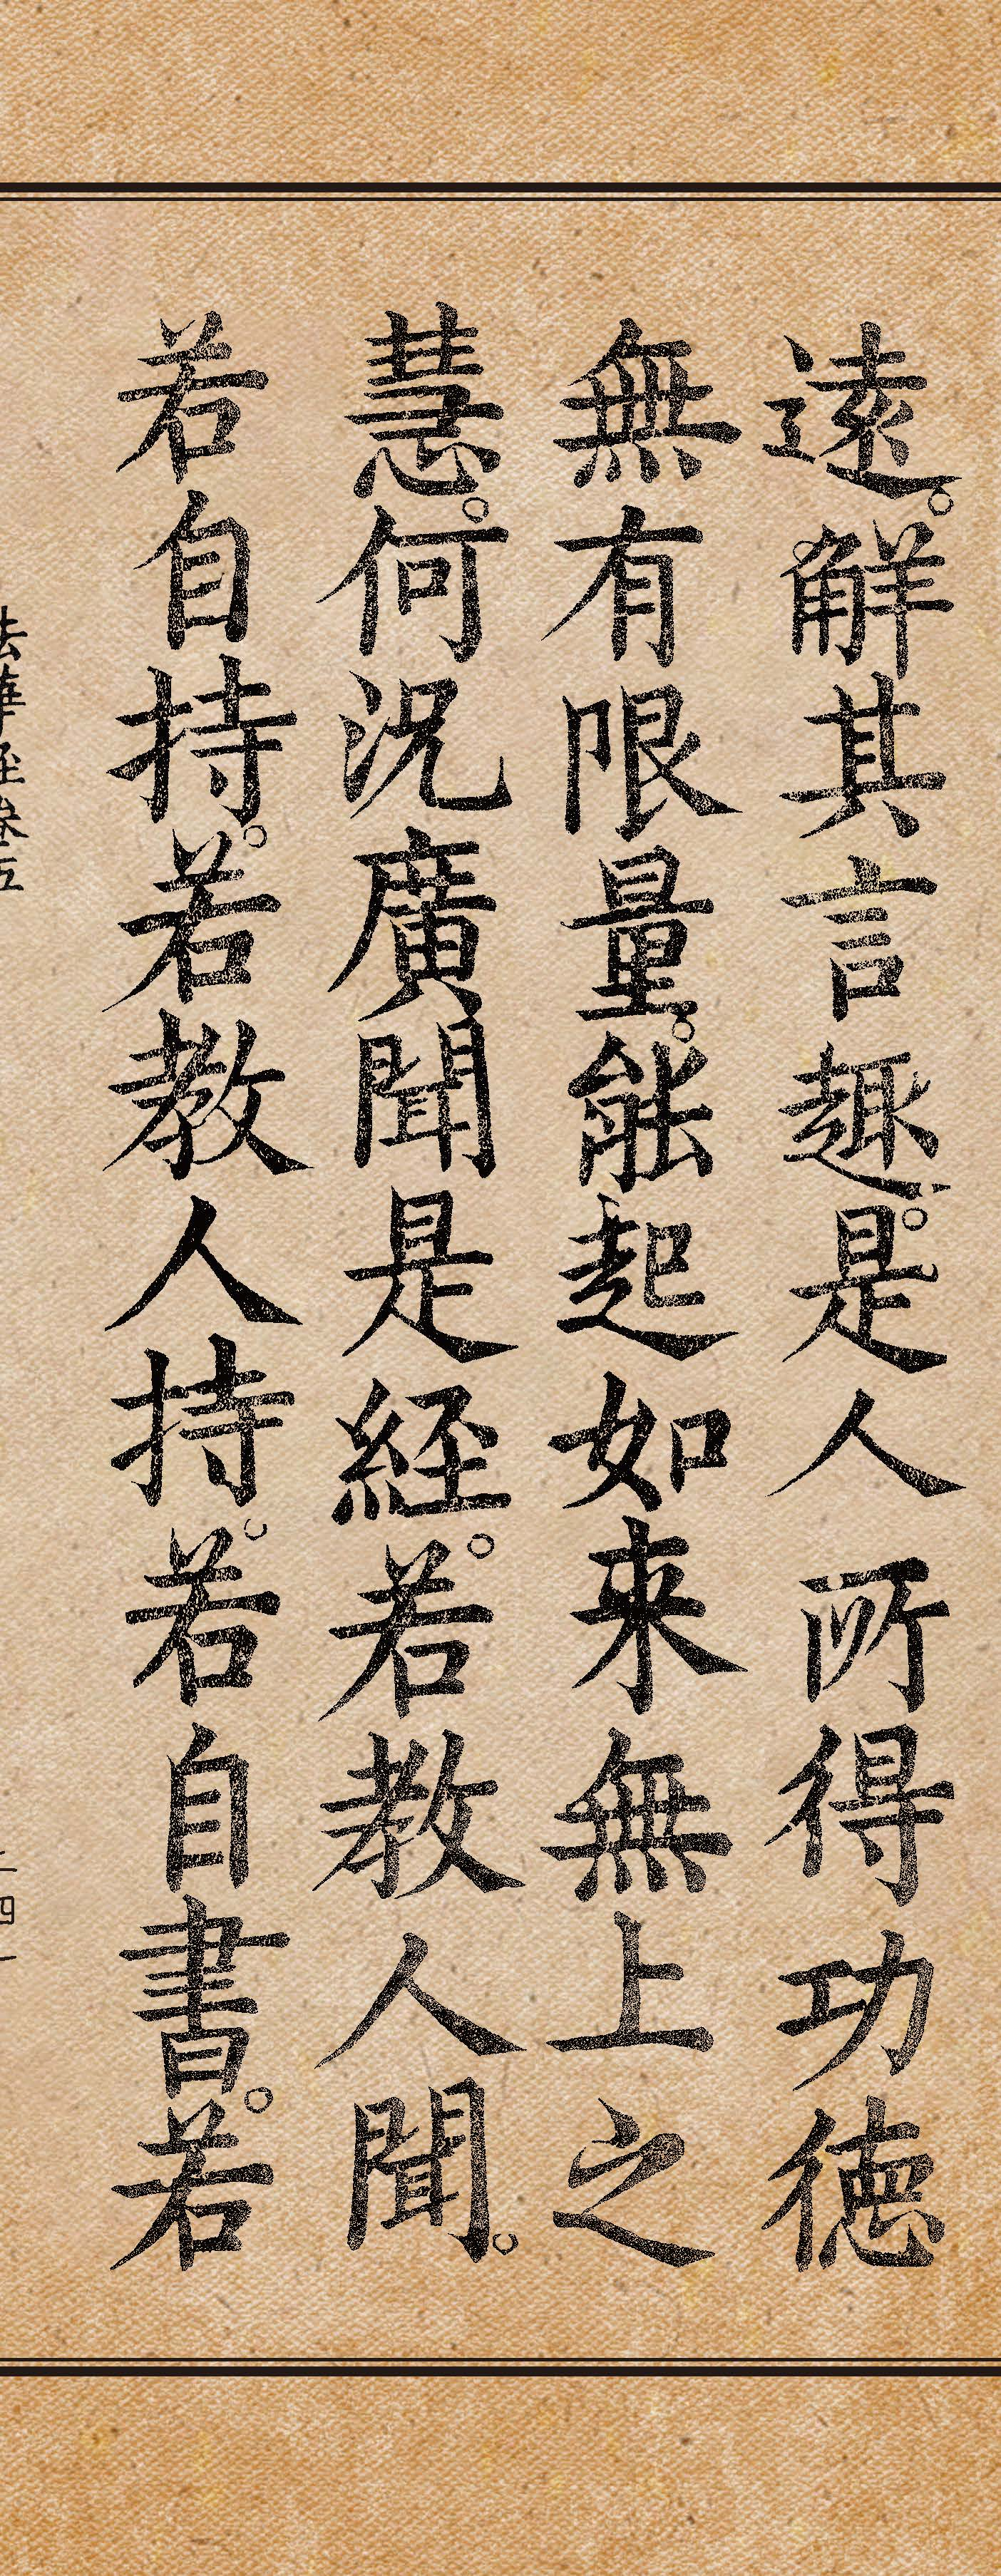 遠。解其言趣。是人所得功徳
無有限量。能起如来無上之
慧。何況廣聞是経。若教人聞。
若自持。若教人持。若自書。若
法華経巻五
二四一